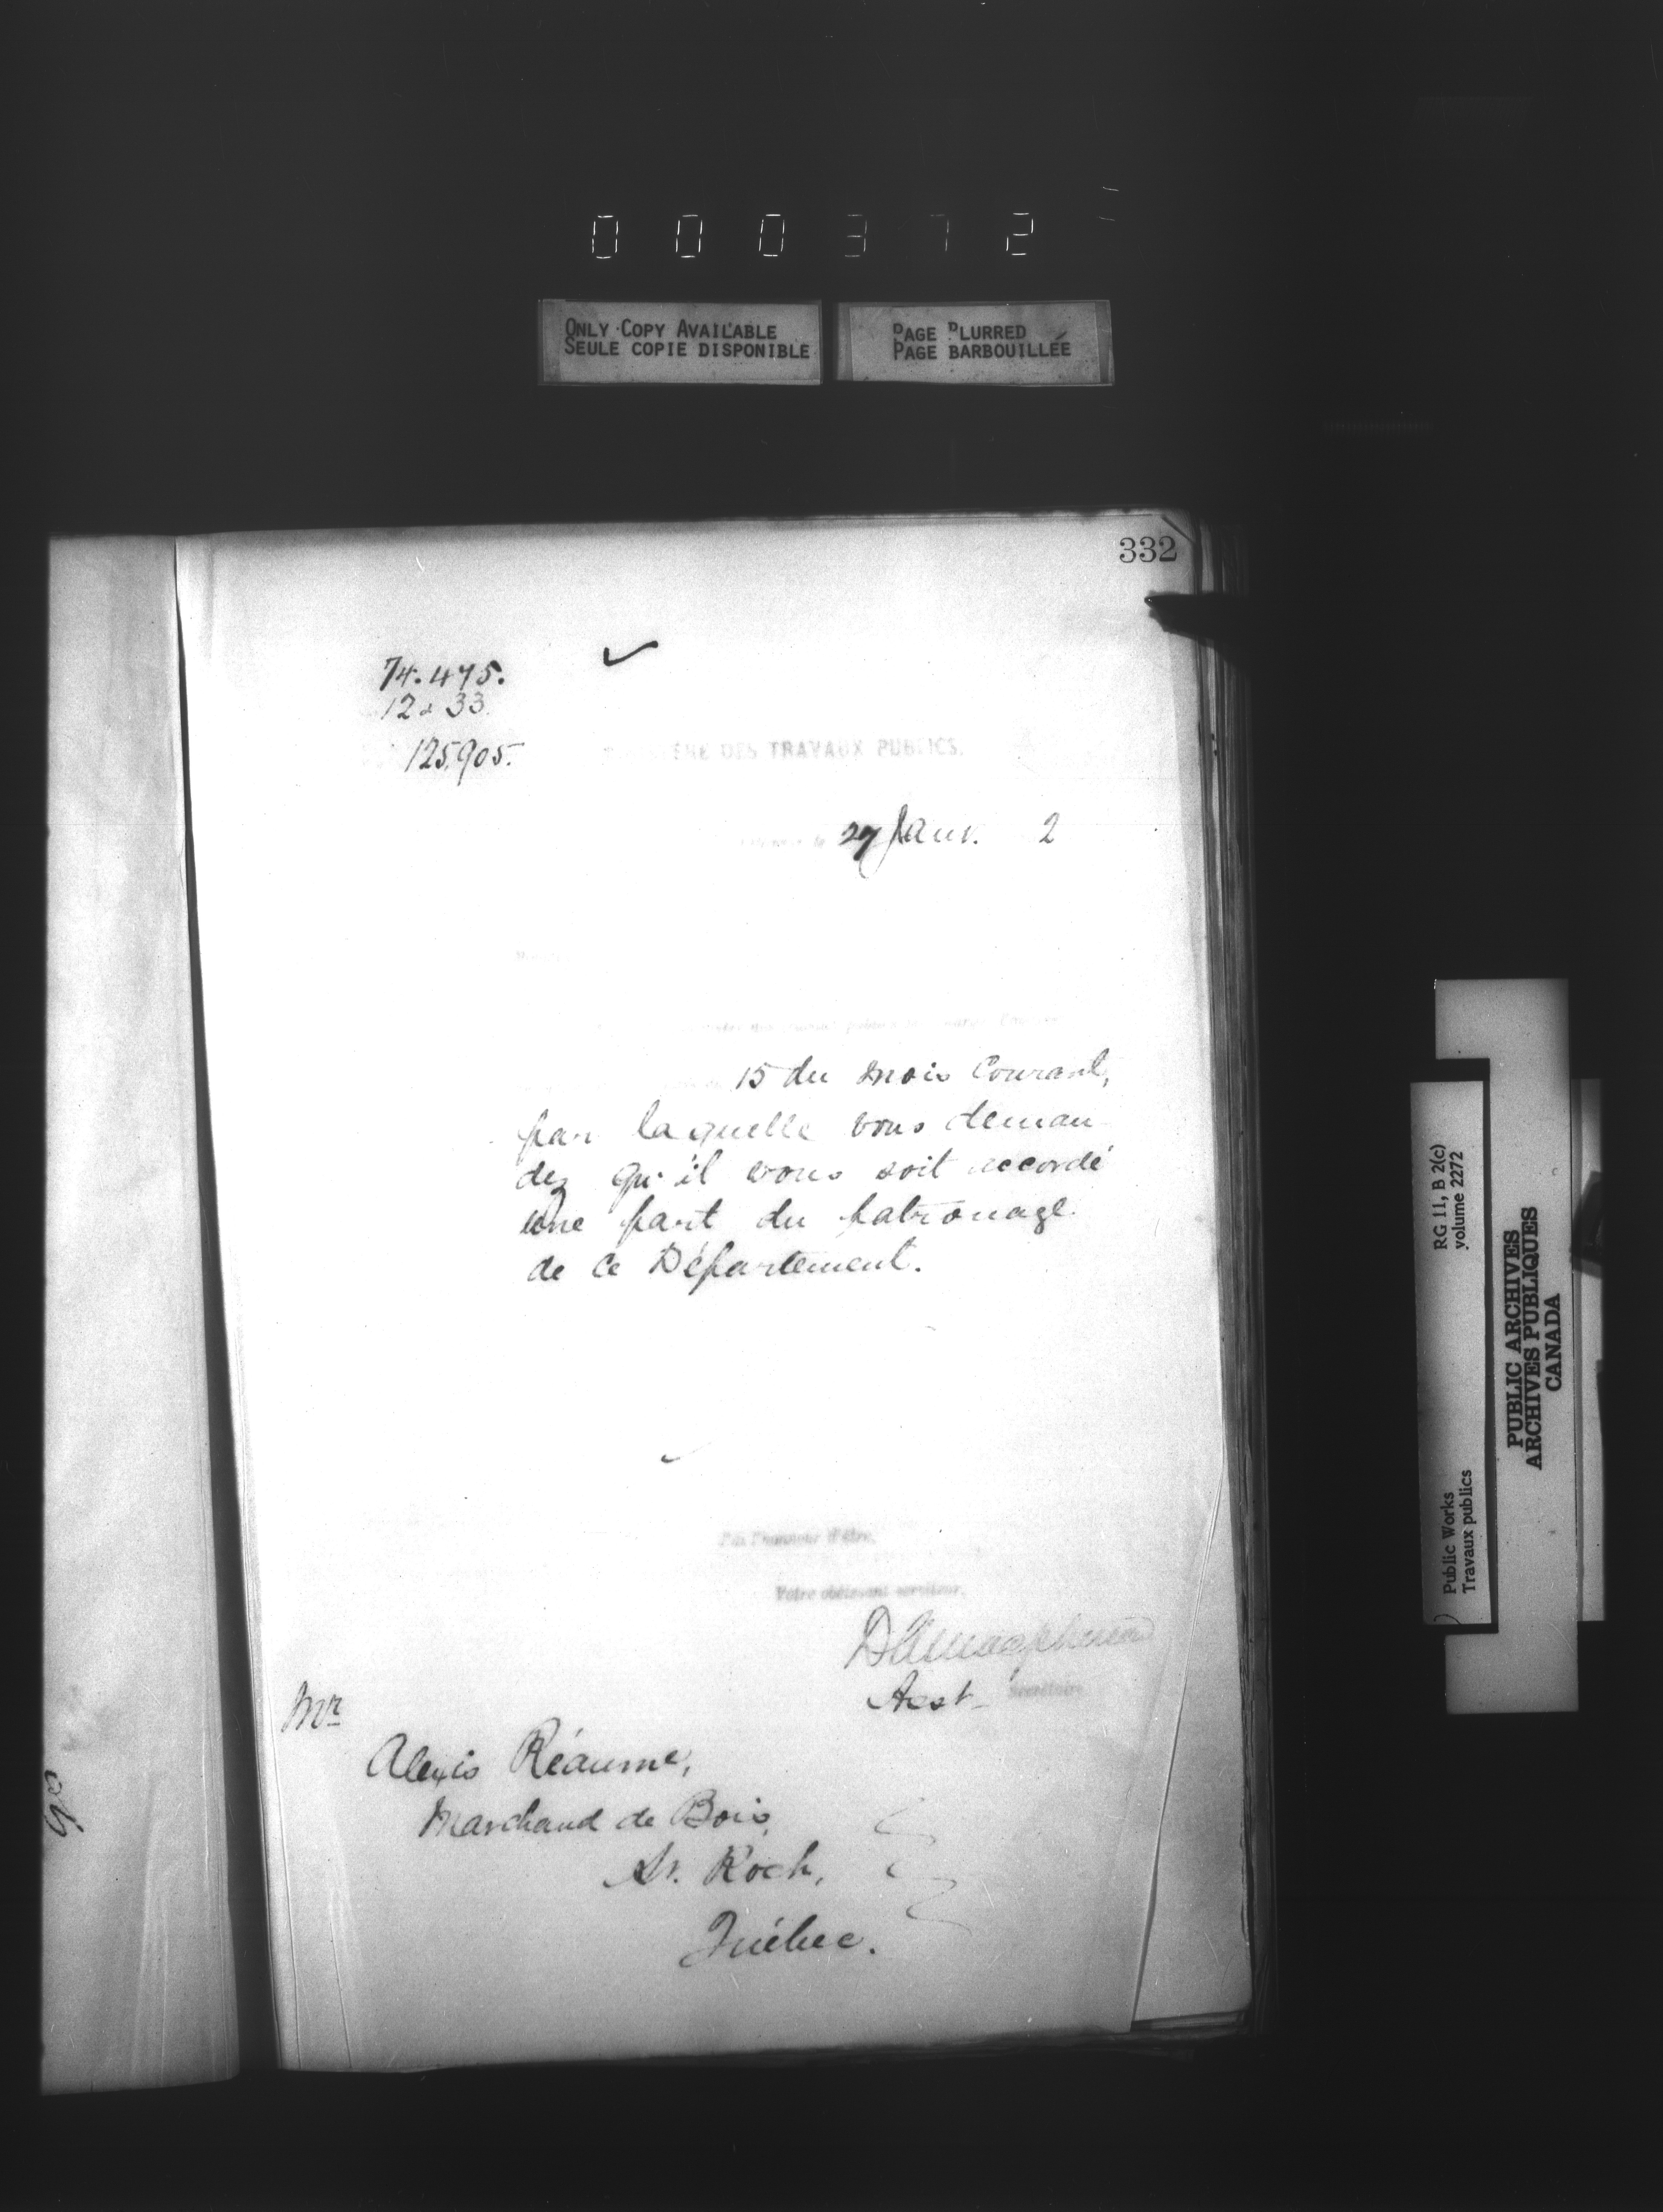 000372
ONLY COPY AVAILABLE
SEULE COPIE DISPONIBLE
PAGE BLURRED
PAGE BARBOUILLÉE
332
74.475.
12 & 33
125,905.
DES TRAVAUX PUBLICS.
27 Janv. 2
15 du mois Courant,
par laquelle vous deman-
dez qu'il vous soit accordé
une part du patronage
de ce Département.
J'ai l'honneur d'être,
Votre obéissant serviteur,
Asst. Secrétaire
Mr
Alexis Réaume,
Marchand de Bois,
St. Roch,
Québec.
Public Works
Travaux publics
RG 11, B 2(c)
volume 2272
PUBLIC ARCHIVES
ARCHIVES PUBLIQUES
CANADA